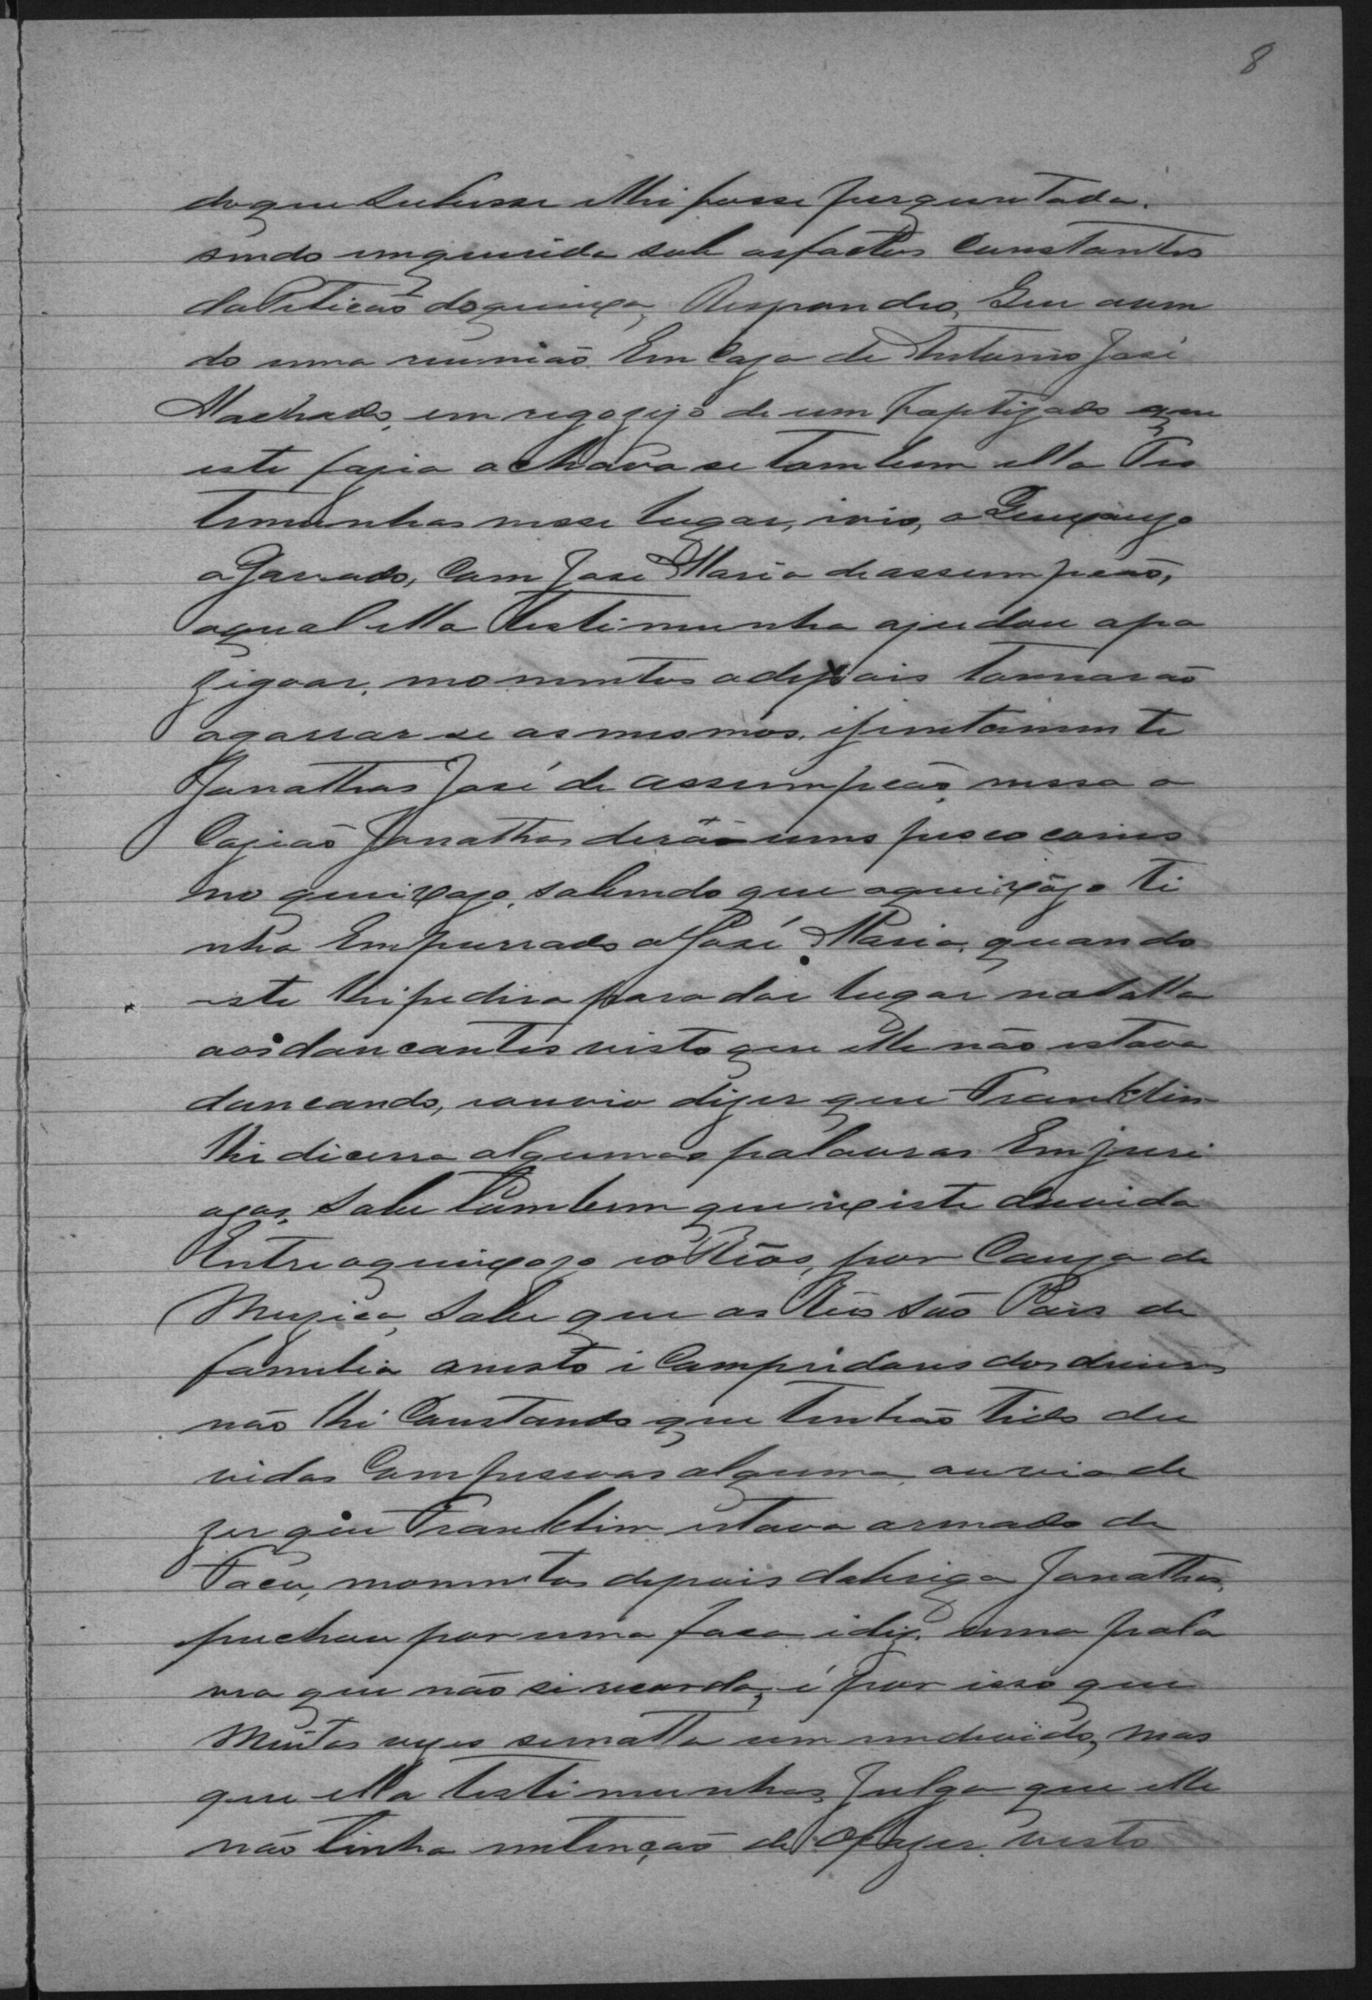 8
do que Subesse e lhi fosse perguntada.
sendo inquerida sub os factos Constantes
da Peticão de queixa, Respondeo, Que aven
do uma reunião Em Caza de Antonio José
Machado, em regozijo de um Baptizado que
este fazia achava se tambem ella Tes
timunha nesse lugar, viu, o Queixozo
agarrado, Com José Maria de assumpção,
a qual ella Testimunha ajudou apa
ziguar, momentos adepois tornarão
agarrar se as mesmos, i juntamente
Janathas José de assumpcão nessa o
Cazião Janathas derão uns pescocoins
no queixozo, sabendo que o queixozo ti
nha Empurrado a José Maria, quando
este lhi pedira para dar lugar na balla
aos dancantes visto que elle não estava
dancando, i ouvio dizer que Franklin
lhi dicera algumas palavras Emjuri
ozas, Sabe tambem que iziste duvida
Entre o queixozo i os Réos, por Cauza de
Muzica, Sabe que os Réos São Pais de
familia onesto i Compridores dos deveres
não lhi Constando que tenhão tido du
vidas Com pesoas alguma, ouvio di
zer que Franklin estava armado de
Faca, momentos depois da briga Janathas,
puchou por uma faca i diz. uma pala
vra que não si recorda, é por isso que
Muitas vezes se matta um individo, mas
que ella testimunha, Julga que elle
não tinha intenção de o fazer visto